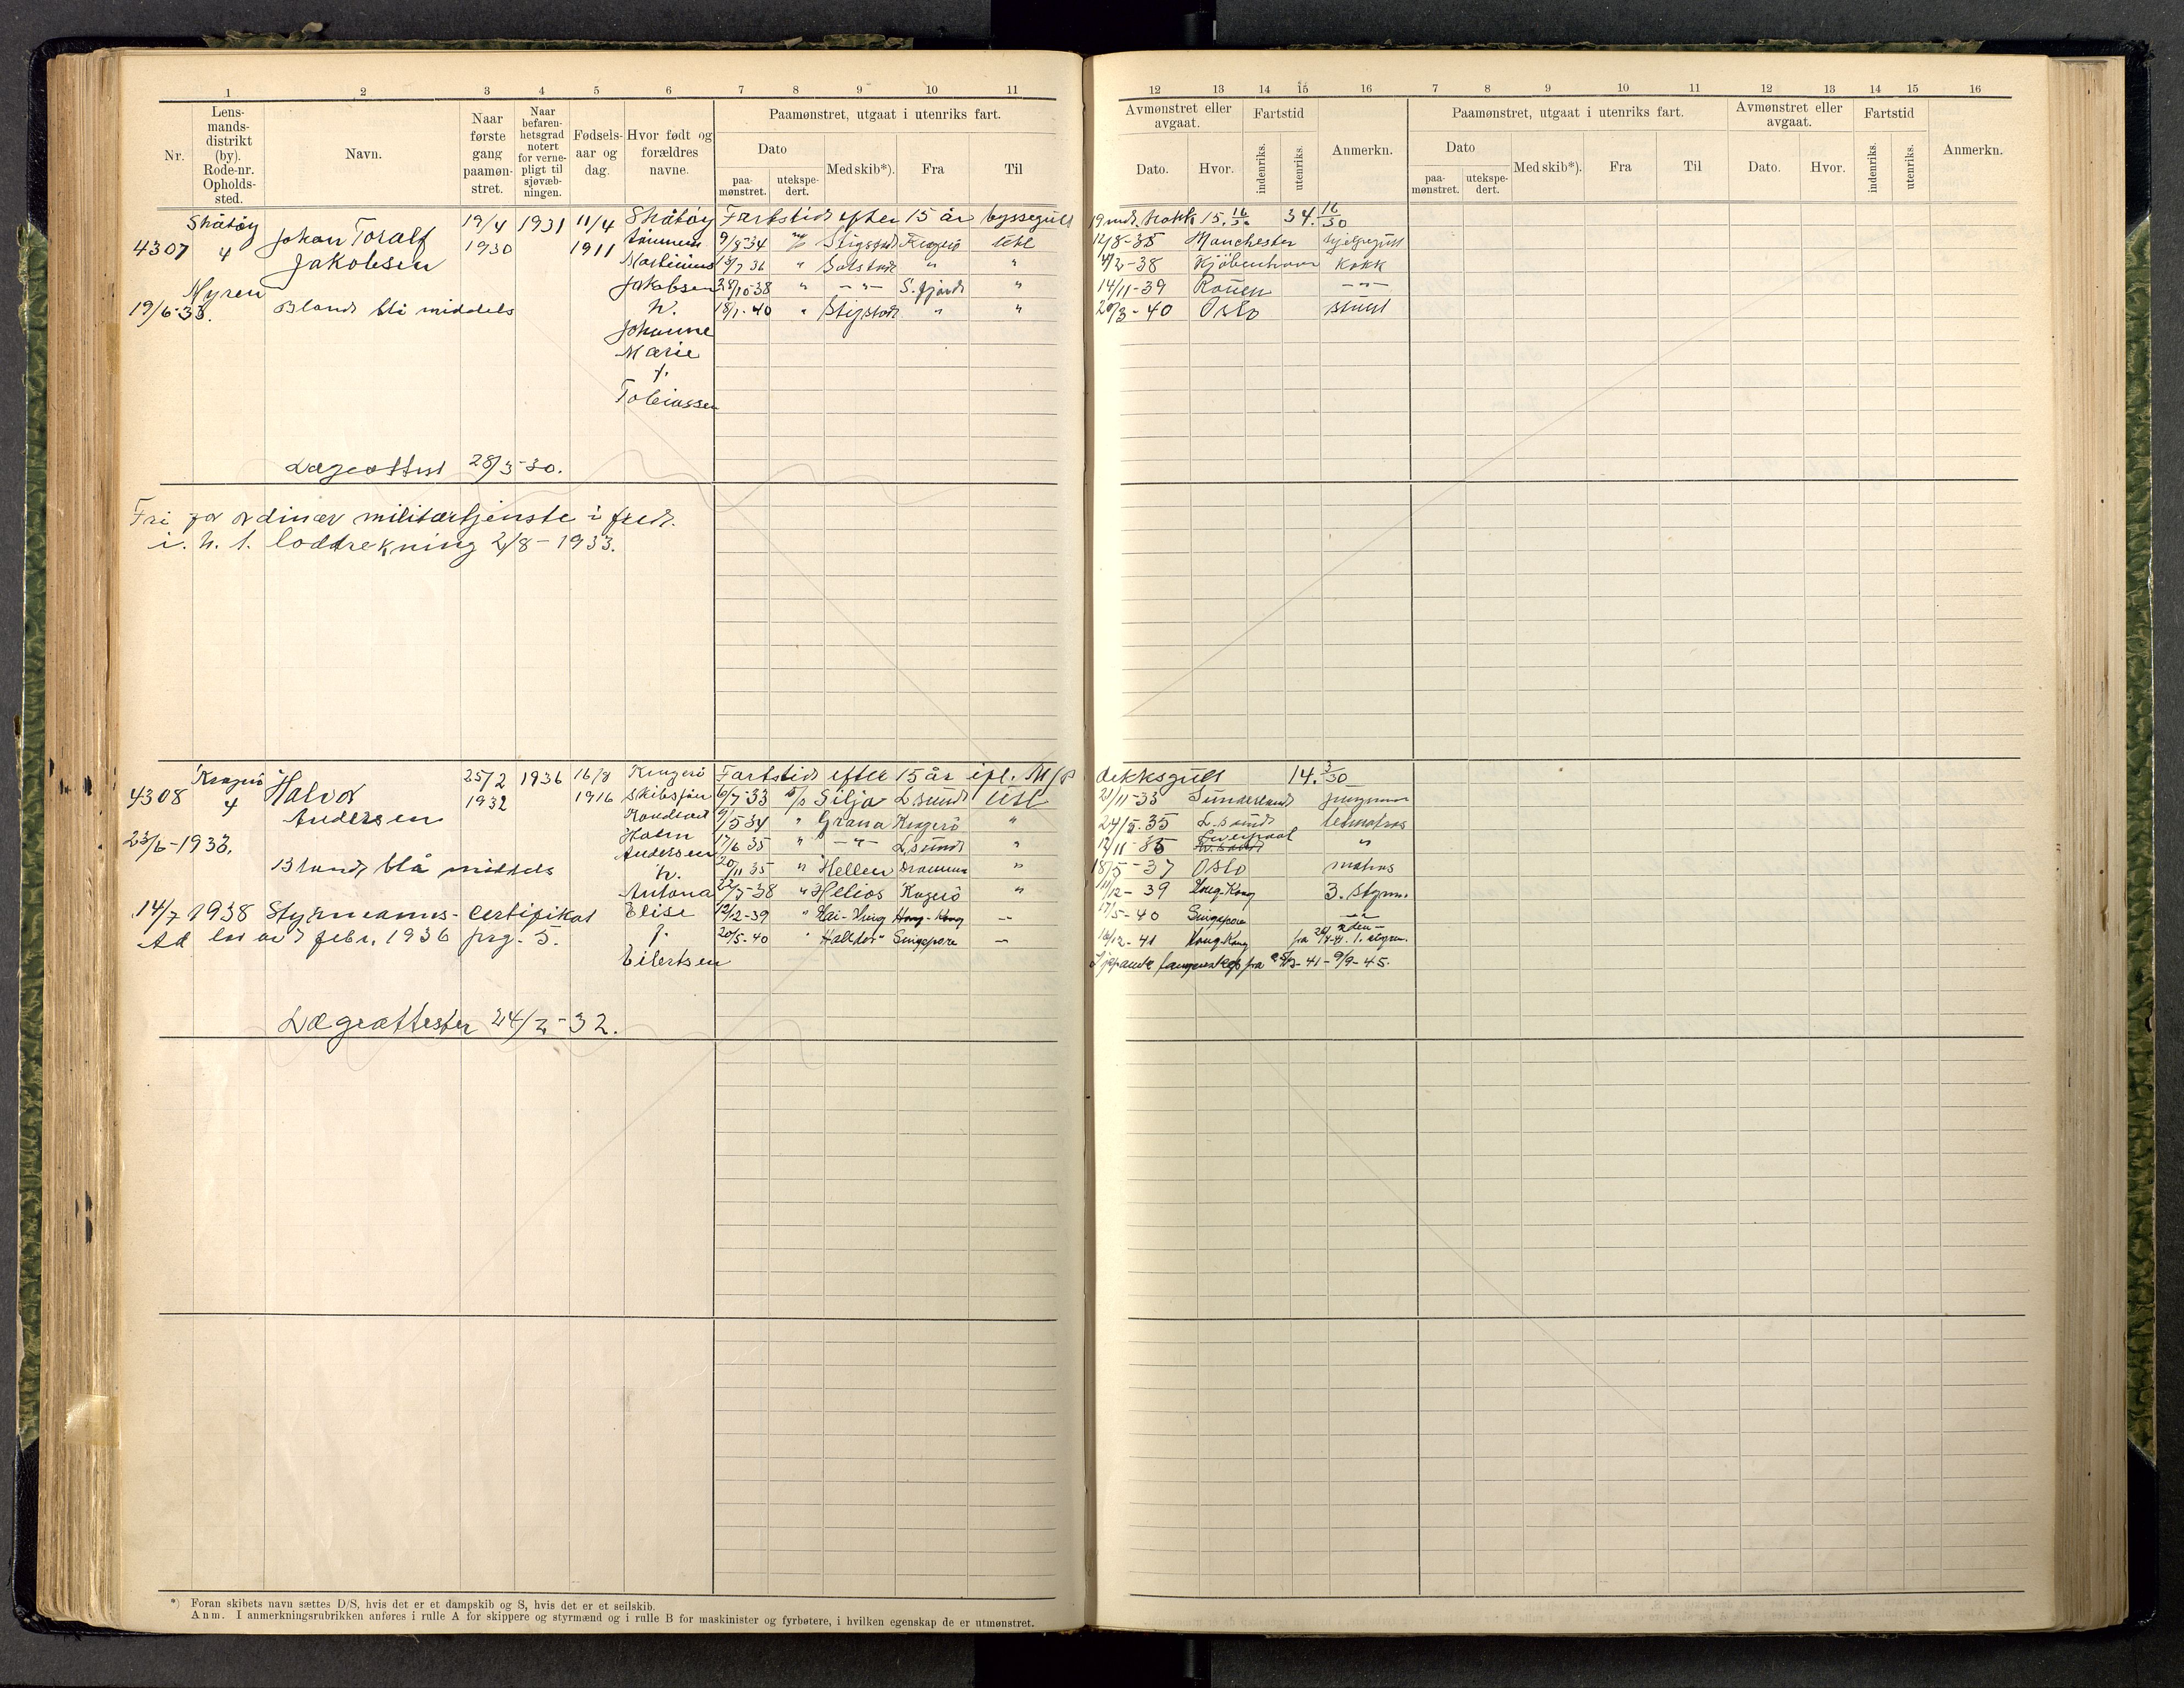 1 2 3 4 5 6 7 8 9 10 11
Nr.
Lens-
mands-
distrikt
(by).
Rode-nr.
Opholds-
sted.
Navn.
Naar
første
gang
paamøn-
stret.
Naar
befaren-
hetsgrad
notert
for verne-
pligt til
sjøvæb-
ningen.
Fødsels-
aar og
dag.
Hvor født og
forældres
navne.
Paamønstret, utgaat i utenriks fart.
Dato
paa-
mønstret.
utekspe-
dert.
Med skib*).
Fra
Til
Skåtøy 19/4 1931 11/4 Skåtøy Fartstid efter 15 år byssegutt
4307 4 Johan Toralf 1930 1911 9/8-34 Stigstad Kragerø Utl
Jakobsen Martinius 13/7 36 " Solstad " "
Myren Jakobsen 28/10-38 " -"- S.fjord "
19/6-33. Blond blå middels h. 18/1-40 " Stigstad " "
Johanne
Marie
f.
Tobiassen
Lægeattest 28/3-30.
Fri for ordinær militærtjenste i fred.
i. h. t. loddtrekning 2/8-1933.
Kragerø 25/2 1936 16/8 Kragerø Fartstid efter 15 år
4308 4 Halvor 1932 1916 6/7-33 Silja L.sund Utl
Andersen 9/5 34 " Grana Kragerø "
23/6-1933. Holm 17/6 35 " -"- L.sund "
Andersen
Blond blå middels h. 20/11 35 " Hellen Drammen "
Antona 22/7-38 " Helios Kragerø "
14/7 1938 Styrmanns-certifikat Elise 12/12-39 " Hai-Hing Hong-Kong -
lov av 7 febr. 1936 prg. 5. f. 20/5-40 " Halldor Singapore -
Eilertsen
Lægeattester 24/2-32.
*) Foran skibets navn sættes D/S, hvis det er et dampskib og S, hvis det er et seilskib.
Anm. I anmerkningsrubrikken anføres i rulle A for skippere og styrmænd og i rulle B for maskinister og fyrbøtere, i hvilken egenskap de er utmønstret.
12 13 14 15 16 7 8 9 10 11 12 13 14 15 16
Avmønstret eller
avgaat.
Fartstid
Dato.
Hvor.
indenriks.
utenriks.
Anmerkn.
Paamønstret, utgaat i utenriks fart.
Dato
paa-
mønstret.
utekspe-
dert.
Med skib*).
Fra
Til
Avmønstret eller
avgaat.
Fartstid
Dato.
Hvor.
indenriks.
utenriks.
Anmerkn.
19 mdr. kokk 15. 16/30 34. 16/30
12/8-35 Manchester hjelpegutt
4/2-38 Kjøbenhavn kokk
14/11-39 Rouen -"-
20/3-40 Oslo stuert
dekksgutt 14. 3/30
21/11-33 Sunderland jungmann
24/5.35 L.sund letmatros
12/11-35 Liverpool "
18/5-37 Oslo matros
11/12-39 Hong-Kong 3. styrm.
17/5-40 Singapore -"-
2den-
16/12-41 Hong-Kong fra 1. styrm.
I japansk fangenskap fra 25/12-41-9/9-45.